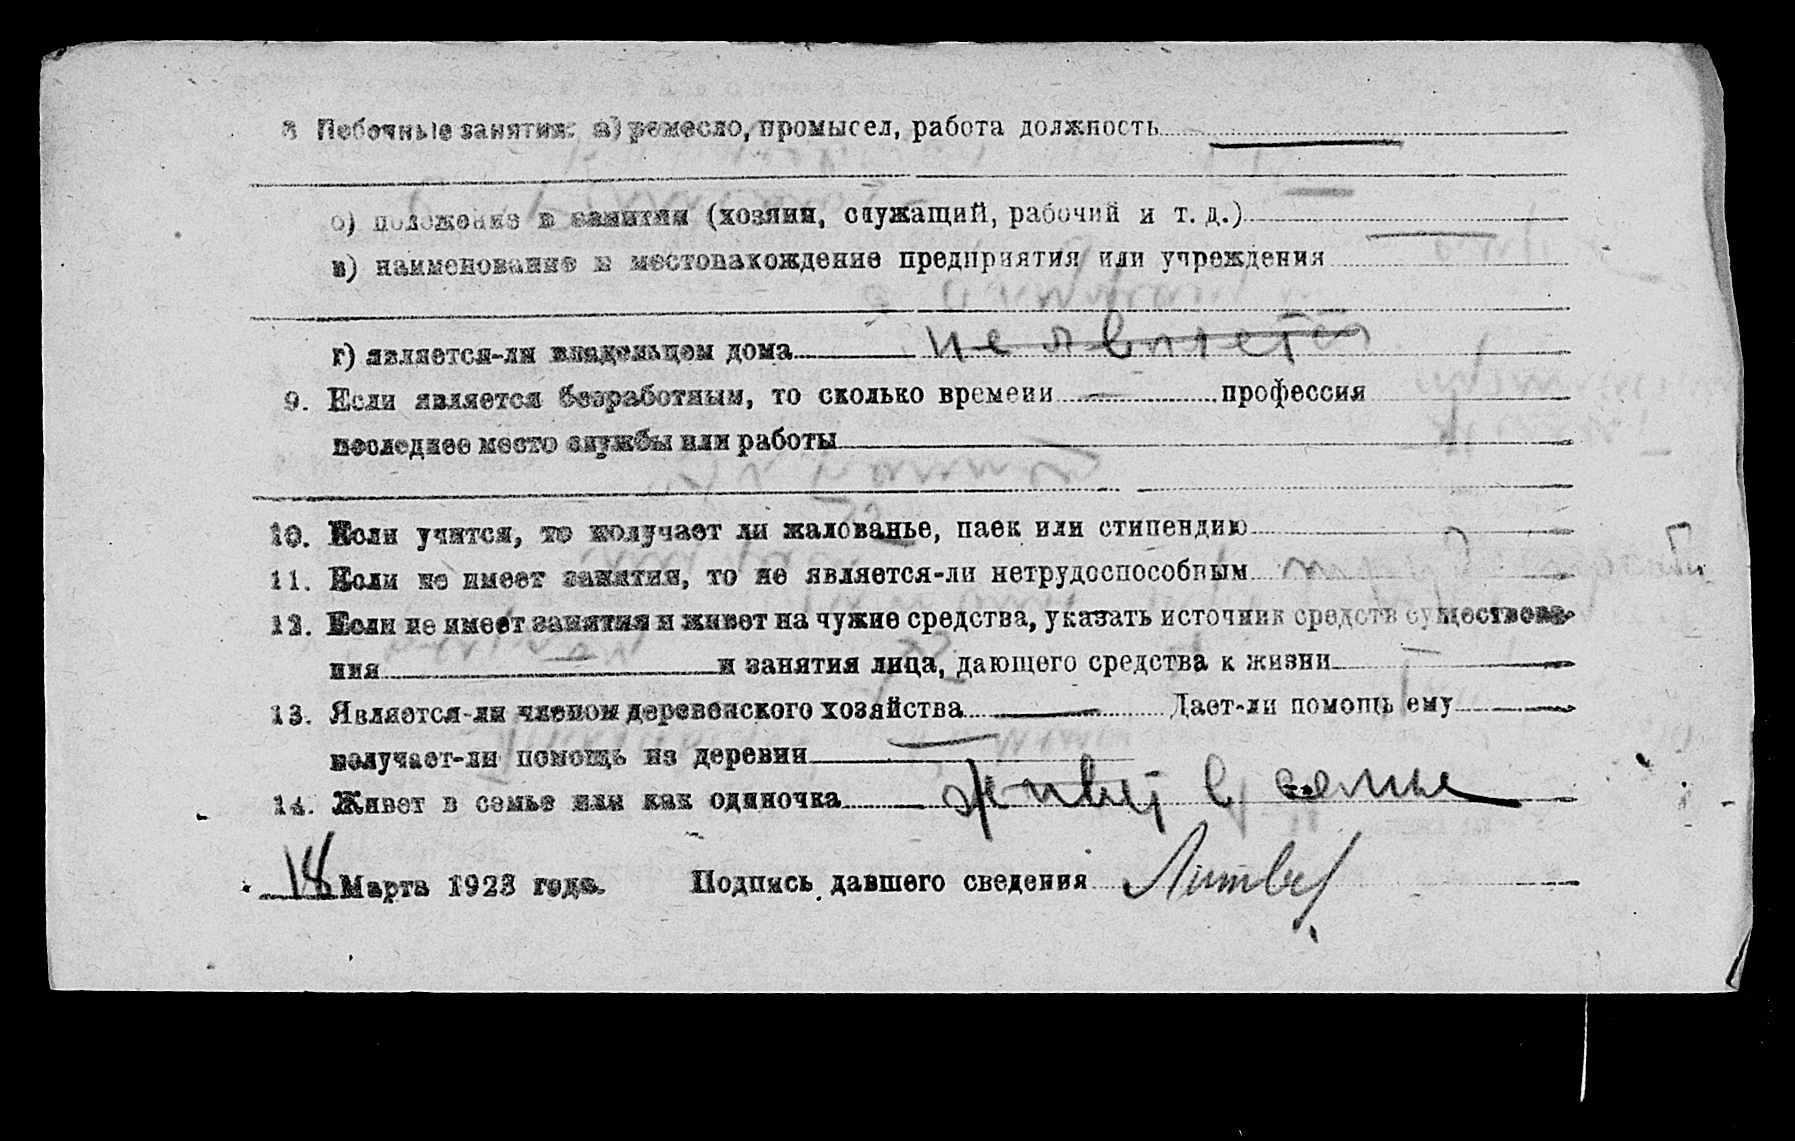 8 Побочные занятия: а) ремесло, промысел, работа должность
б) положение в занятии (хозяин, служащий, рабочий и т. д.)
в) наименование и местонахождение предприятия или учреждения
г) является-ли владельцем дома не является
9. Если является безработным, то сколько времени — профессия
последнее место службы или работы
10. Если учится, то получает ли жалованье, паек или стипендию
11. Если не имеет занятия, то не является-ли нетрудоспособным
12. Если не имеет занятия и живет на чужие средства, указать источник средств существова-
ния и занятия лица, дающего средства к жизни
13. Является-ли членом деревенского хозяйства — Дает-ли помощь ему
получает-ли помощь из деревни —
14. Живет в семье или как одиночка живет в семье
18 Марта 1923 года. Подпись давшего сведения